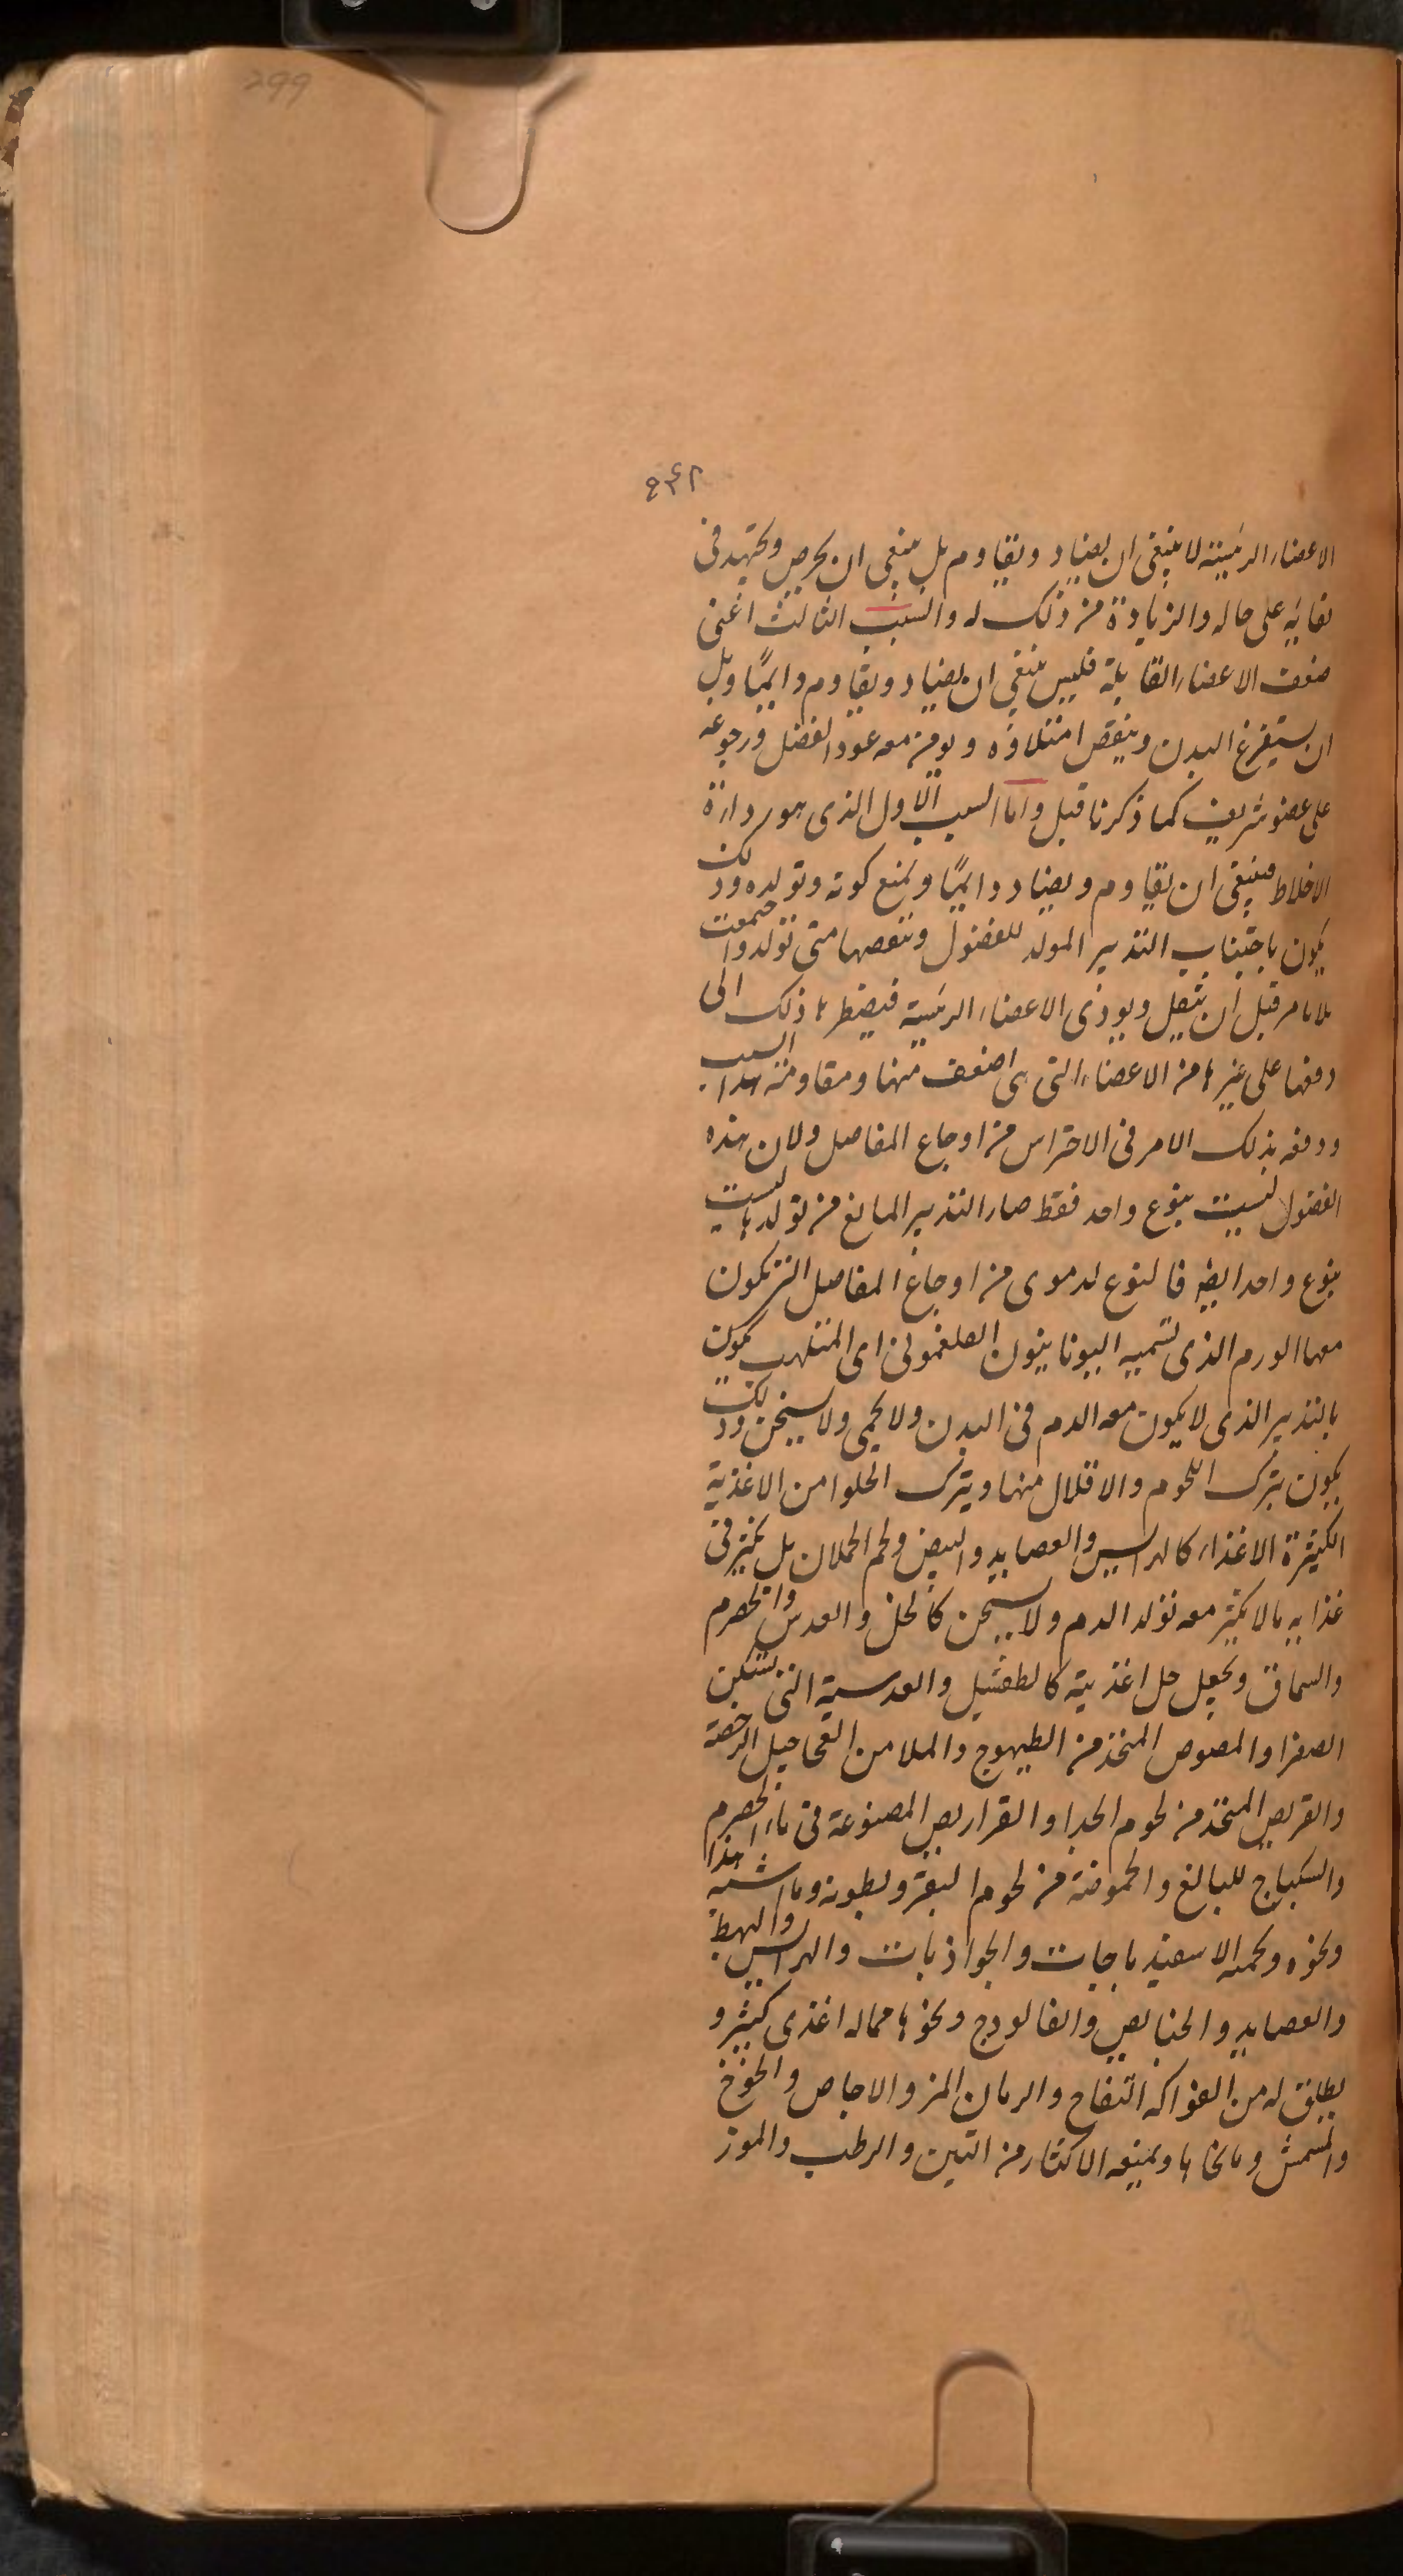 299
٩٤٢
الاعضاء الرئيسة لا ينبغى ان يضاد ويقاوم بل ينبغى ان يحرص ويجتهد فى
بقايه على حاله والزيادة من ذلك له والسبب الثالث اعنى
ضعف الاعضاء القابلة فليس ينبغى ان يضاد ويقاوم دايمًا وبل
ان يستفرغ البدن وينقص امتلاؤه ويومن معه عود الفضل ورجوعه
على عضو شريف كما ذكرنا قبل واما السبب الاول الذى هو رداءة
الاخلاط فينبغى ان يقاوم ويضاد دايمًا ويمنع كونه وتولده وذلك
يكون باجتناب التدبير المولد للفضول وينقصها متى تولد واجتمعت
بلا مر قبل ان يثقل ويوذى الاعضاء الرئيسة فيضطرها ذلك الى
دفعها على غيرها من الاعضاء التى هى اضعف منها ومقاومة هذا السبب
ودفعه بذلك الامر فى الاحتراس من اوجاع المفاصل ولان هذه
الفضول ليست بنوع واحد فقط صار التدبير المانع من تولدها ليست
بنوع واحد ايضا فالنوع لدموى من اوجاع المفاصل التى يكون
معها الورم الذى تسميه اليونانيون الفلغمونى اى الملتهب يكون
بالتدبير الذى لا يكون معه الدم فى البدن ولا يحمى ولا يسخن وذلك
يكون بترك اللحوم والاقلال منها ويترك الحلوا من الاغذية
الكثيرة الاغذاء كالهرايس والعصايد والبيض ولحم الحملان بل يكثر فى
غذايه مالا يكثر معه تولد الدم ولا يسخن كالخل والعدس والحصرم
والسماق ويجعل جل اغذيته كالطفشيل والعدسية التى تسكين
الصفرا والمصوص المتخذ من الطيهوج والهلام من العجاجيل الرخصة
والقريص المتخذ من لحوم الجدا والقراريص المصنوعة فى ماء الحصرم
والسكباج للبالغ والحموضة من لحوم البقر وبطونه وما اشبه هذا
ونحوه ويحميه الاسفيدباجات والجواذبات والهرايس والبهط
والعصايد والخبايص والفالودج ونحوها مماله اغذى كثير و
يطلق له من الفواكه التفاح والرمان المز والاجاص والخوخ
والمشمش وما نحاها ويمنعه الاكثار من التين والرطب والموز